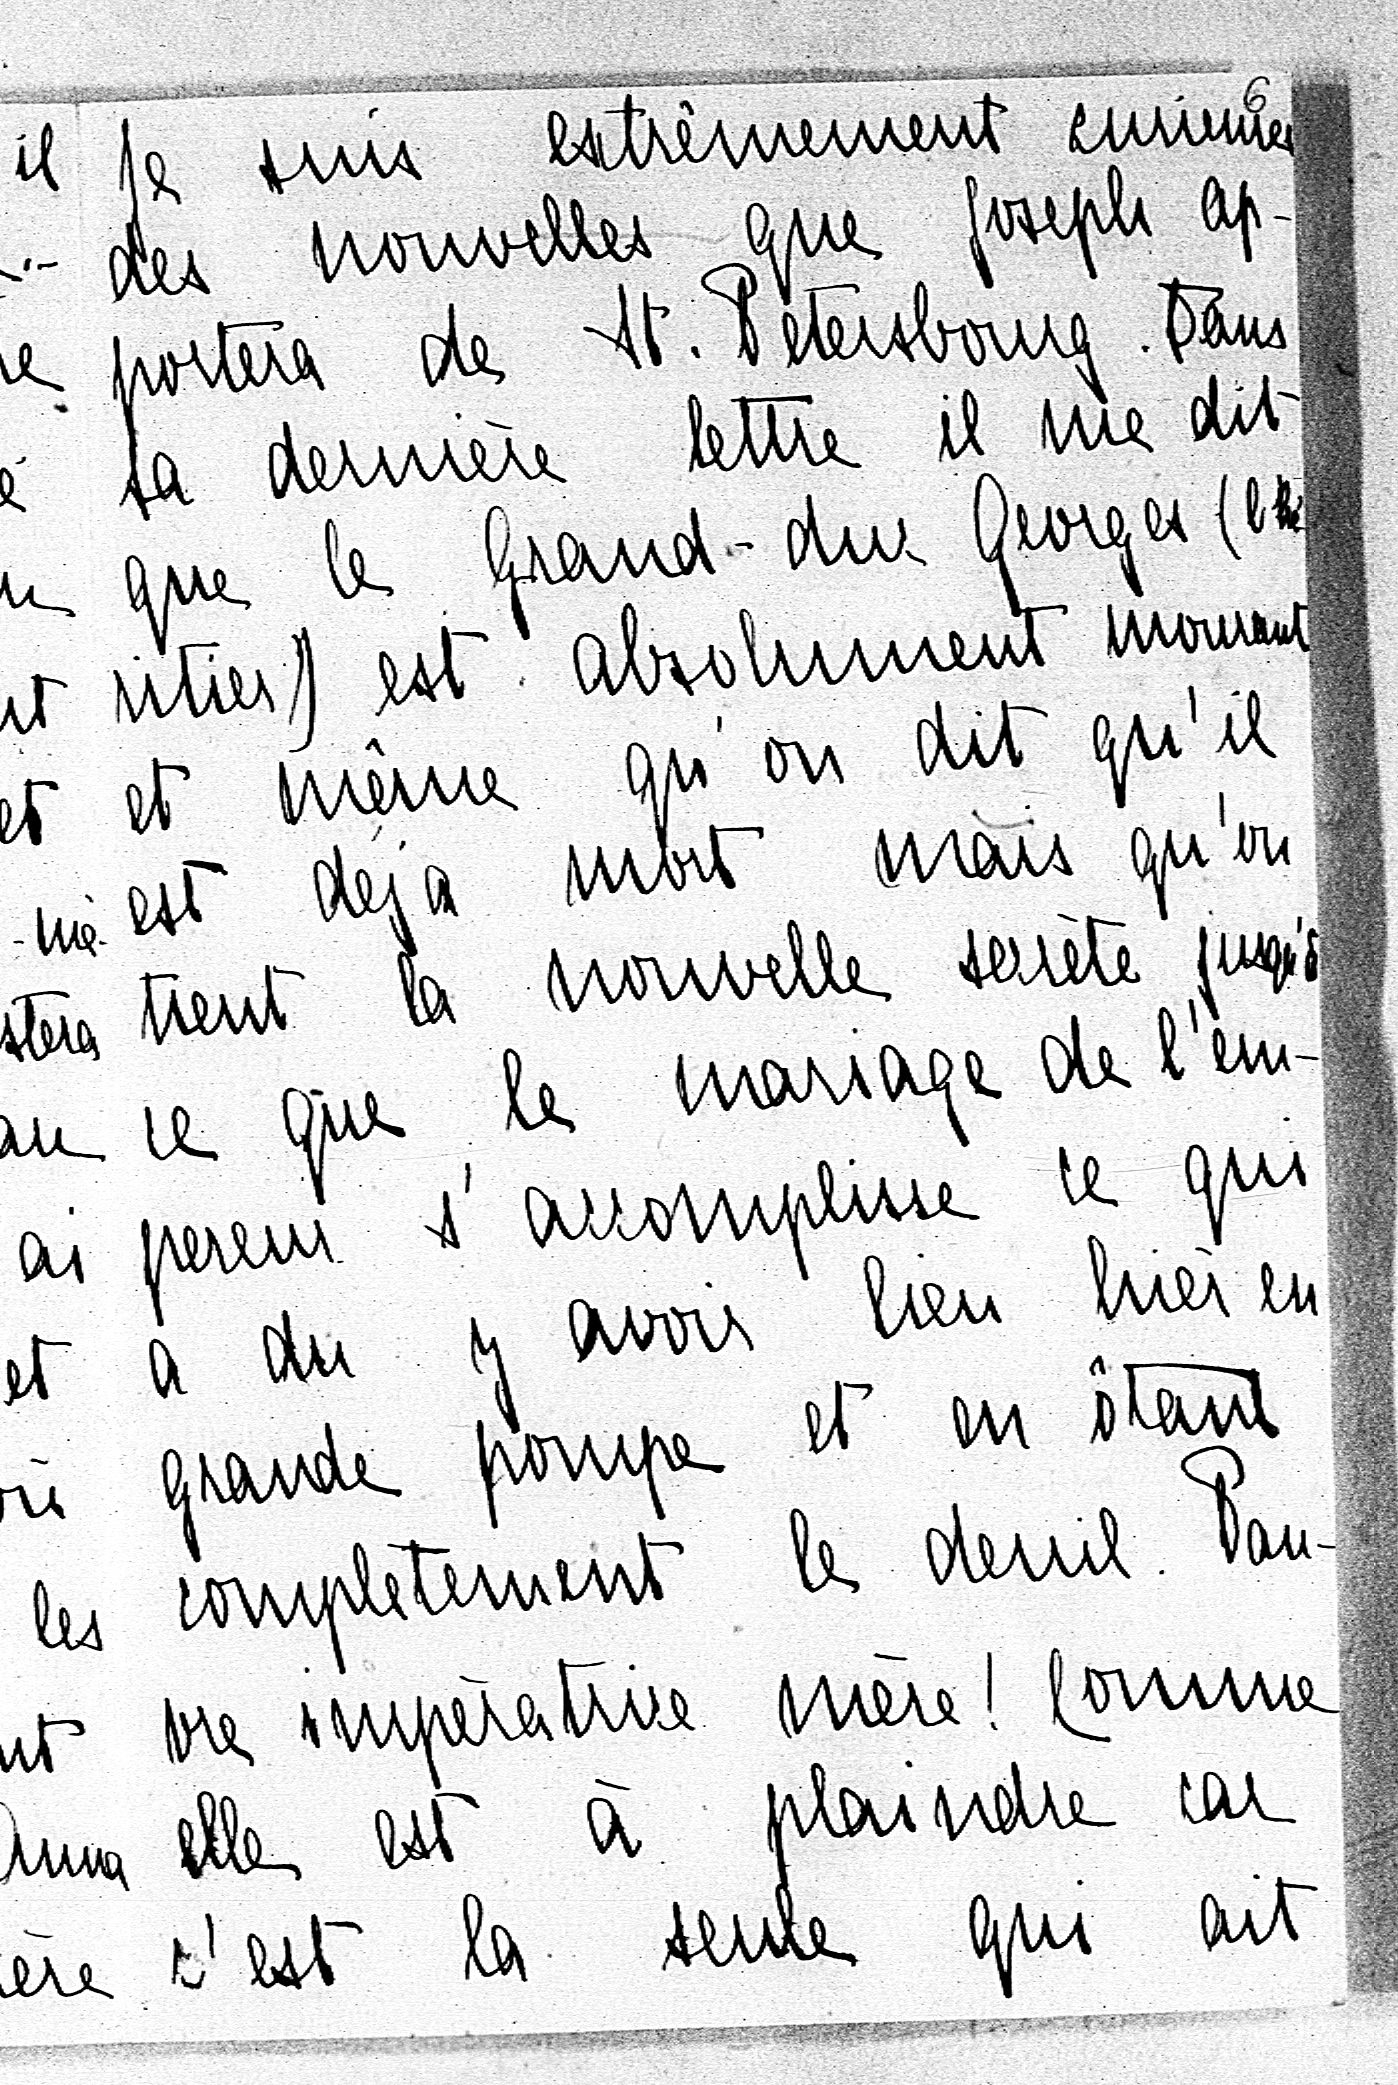 6
Je suis extrêmement curieuse
des nouvelles que Joseph ap-
portera de St. Petersbourg. Dans
sa dernière lettre il me dit
que le Grand-duc Georges (l'hé
ritier) est absolument mourant
et même qu'on dit qu'il
est déjà mort mais qu'on
tient la nouvelle secrète jusqu'à
ce que le mariage de l'em-
pereur s'accomplisse ce qui
a du y avoir lieu hier en
grande pompe et en ôtant
complètement le deuil. Pau-
vre impératrice mère! Comme
elle est à plaindre car
c'est la seule qui ait
il
é
et
-mê-
stera
au
ai
et
les
Anna
ère